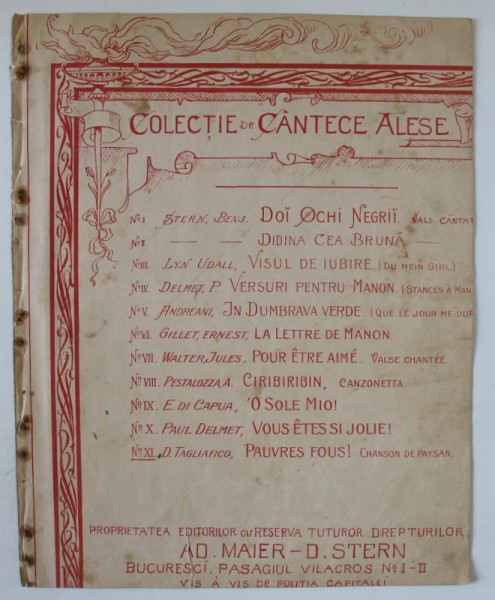 COLECȚIE DE CÂNTECE ALESE
No I STERN, BENJ. DOĬ OCHI NEGRIĬ. VALS CÂNTAT
No II — — DIDINA CEA BRUNĂ —
No III. LYN UDALL, VISUL DE IUBIRE. (DU MEIN GIRL)
No IV. DELMET, P. VERSURI PENTRU MANON. (STANCES À MAN
No V. ANDREANI, IN DUMBRAVA VERDE. (QUE LE JOUR ME DUR
No VI. GILLET, ERNEST, LA LETTRE DE MANON.
No VII. WALTER, JULES. POUR ÊTRE AIMÉ. VALSE CHANTÉE.
No VIII. PESTALOZZA, A. CIRIBIRIBIN, CANZONETTA.
No IX. E. DI CAPUA, 'O SOLE MIO!
No X. PAUL DELMET, VOUS ÊTES SI JOLIE!
No XI. D. TAGLIAFICO, PAUVRES FOUS! CHANSON DE PAYSAN.
PROPRIETATEA EDITORILOR CU RESERVA TUTUROR DREPTURILOR
AD. MAIER – D. STERN
BUCURESCĬ, PASAGIUL VILACROS No I–II
VIS À VIS DE POLIȚIA CAPITALEĬ